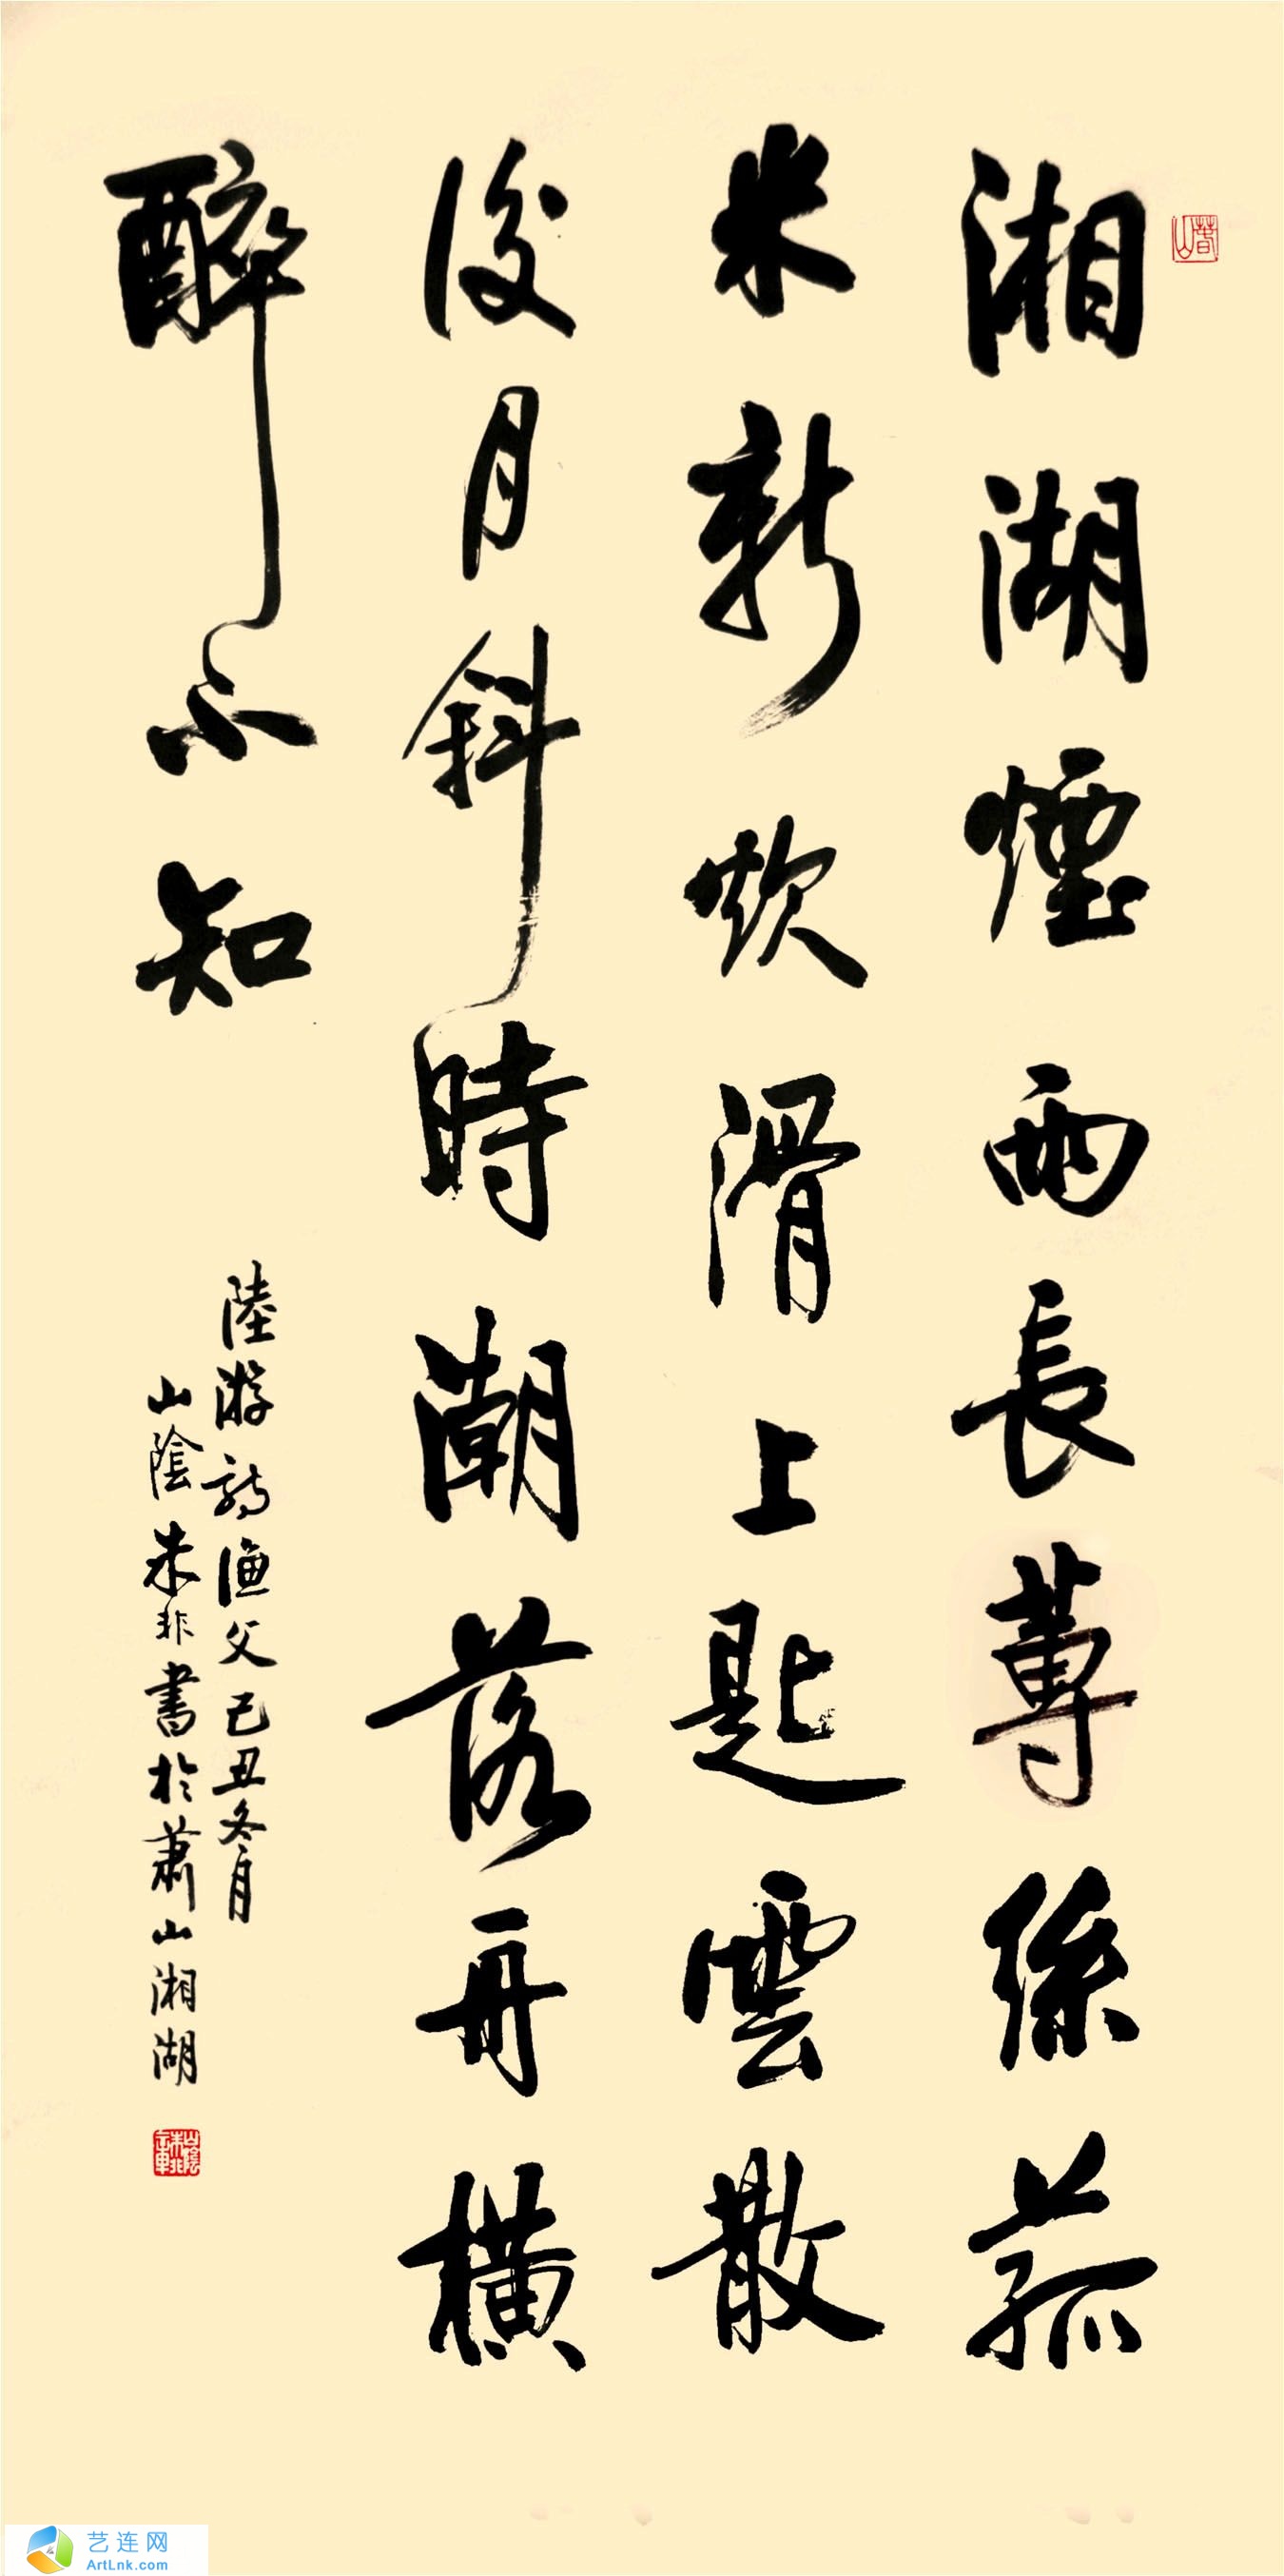 湘湖煙雨長蓴絲菰
米新炊滑上匙雲散
後月斜時潮落舟橫
醉不知
陸游詩漁父己丑冬月
山陰朱非書於蕭山湘湖
艺连网
ArtLnk.com